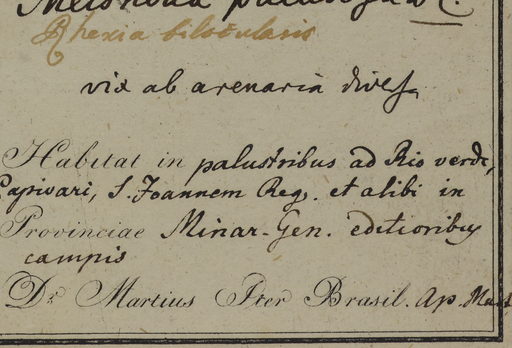 Rhexia bilocularis
vix ab arenaria divers.
Habitat in palustribus ad Rio verde,
Capivari, S. Joannem Reg. et alibi in
Provinciae Minar-Gen. editioribus
campis
Dr. Martius Iter Brasil. Ap. Mart